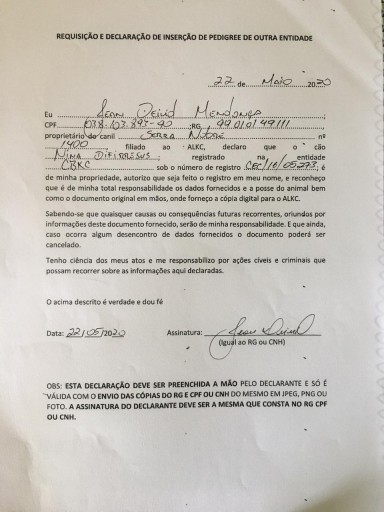 REQUISIÇÃO E DECLARAÇÃO DE INSERÇÃO DE PEDIGREE DE OUTRA ENTIDADE
22 de Maio 2020
Eu Jean Deivid Mendonça
CPF 038.103.893-90 RG 99010149111
proprietário do canil Serra Nobre nº
1400 filiado ao ALKC, declaro que o cão
Nina registrado na entidade
CBKC sob o número de registro CEC/16/05273; é
de minha propriedade, autorizo que seja feito o registro em meu nome, e reconheço
que é de minha total responsabilidade os dados fornecidos e a posse do animal bem
como o documento original em mãos, onde forneço a cópia digital para o ALKC.
Sabendo-se que quaisquer causas ou consequências futuras recorrentes, oriundos por
informações deste documento fornecido, serão de minha responsabilidade. E que ainda,
caso ocorra algum desencontro de dados fornecidos o documento poderá ser
cancelado.
Tenho ciência dos meus atos e me responsabilizo por ações cíveis e criminais que
possam recorrer as informações aqui declaradas.
O acima descrito é verdade e dou fé
Data: 22/05/2020 Assinatura: Jean Deivid
(Igual ao RG ou CNH)
OBS: ESTA DECLARAÇÃO DEVE SER PREENCHIDA A MÃO PELO DECLARANTE E SÓ É
VÁLIDA COM O ENVIO DAS CÓPIAS DO RG E CPF OU CNH DO MESMO EM JPEG, PNG OU
FOTO. A ASSINATURA DO DECLARANTE DEVE SER A MESMA QUE CONSTA NO RG CPF
OU CNH.